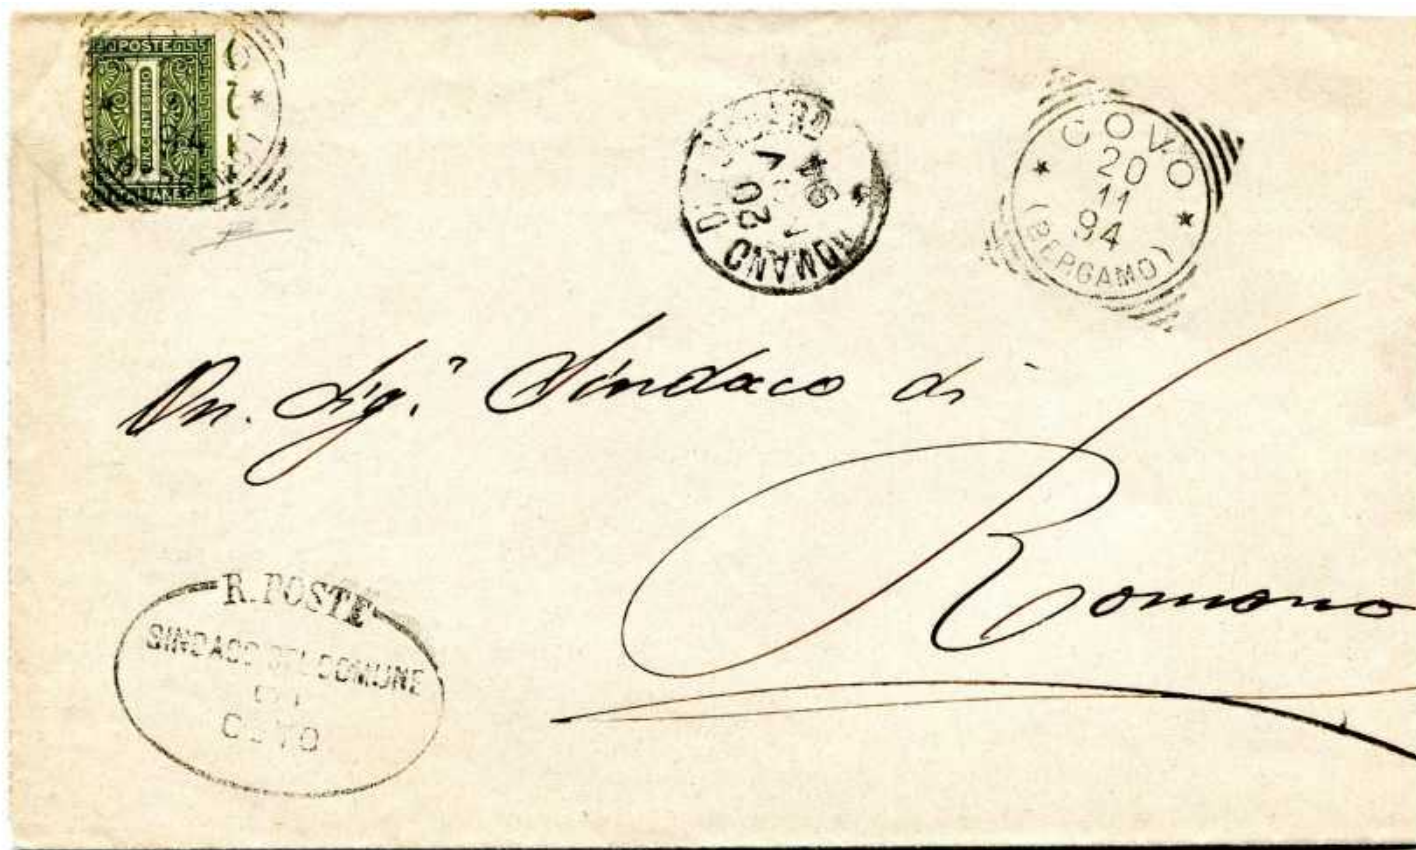 POSTE
UN CENTESIMO
ROMANO DI
20
94
COVO
20
11
94
(BERGAMO)
On. Sig.r Sindaco di
Romano
R. POSTE
SINDACO DEL COMUNE
DI
COVO